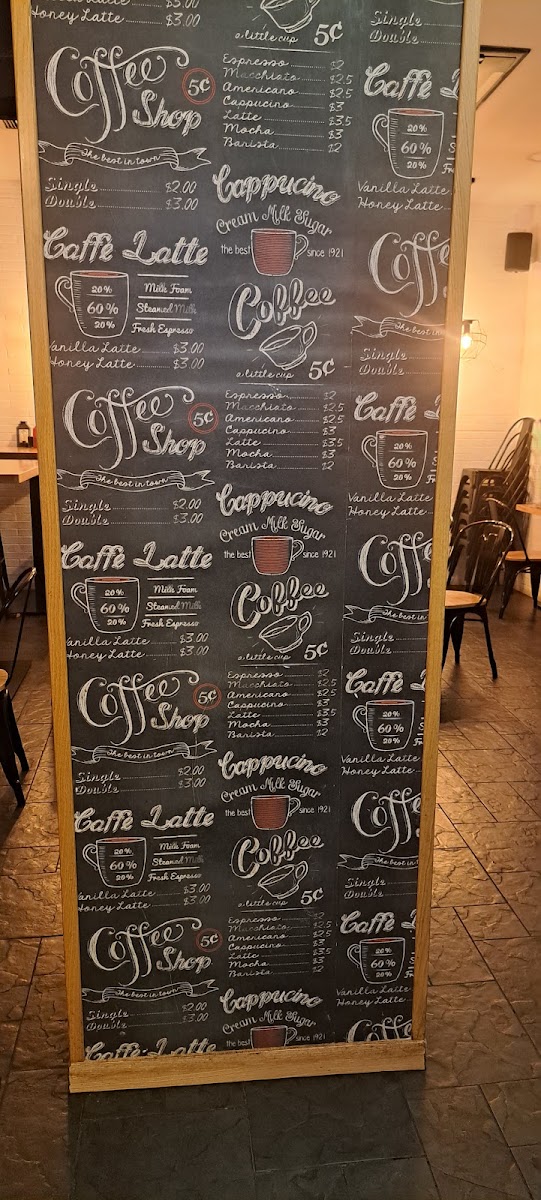 Honey Latte $3.00
Coffee 5¢
Shop
The best in town
Single $2.00
Double $3.00
Caffè Latte
20% Milk Foam
60% Steamed Milk
20% Fresh Espresso
Vanilla Latte $3.00
Honey Latte $3.00
Coffee 5¢
Shop
The best in town
Single $2.00
Double $3.00
Caffè Latte
20% Milk Foam
60% Steamed Milk
20% Fresh Espresso
Vanilla Latte $3.00
Honey Latte $3.00
Coffee 5¢
Shop
The best in town
Single $2.00
Double $3.00
Caffè Latte
20% Milk Foam
60% Steamed Milk
20% Fresh Espresso
Vanilla Latte $3.00
Honey Latte $3.00
Coffee 5¢
Shop
The best in town
Single $2.00
Double $3.00
Caffè Latte
a little cup 5¢
Espresso $2
Macchiato $2.5
Americano $2.5
Cappucino $3
Latte $3.5
Mocha $3
Barista 12
Cappucino
Cream Milk Sugar
the best since 1921
Coffee
a little cup 5¢
Espresso $2
Macchiato $2.5
Americano $2.5
Cappucino $3
Latte $3.5
Mocha $3
Barista 12
Cappucino
Cream Milk Sugar
the best since 1921
Coffee
a little cup 5¢
Espresso $2
Macchiato $2.5
Americano $2.5
Cappucino $3
Latte $3.5
Mocha $3
Barista 12
Cappucino
Cream Milk Sugar
the best since 1921
Coffee
a little cup 5¢
Espresso $2
Macchiato $2.5
Americano $2.5
Cappucino $3
Latte $3.5
Mocha $3
Barista 12
Cappucino
Cream Milk Sugar
the best since 1921
Single
Double
Caffè L
20%
60% S
20% Fr
Vanilla Latte
Honey Latte
Coffe
The best in
Single
Double
Caffè L
20%
60%
20%
Vanilla Latte
Honey Latte
Coffe
The best in
Single
Double
Caffè L
20%
60%
20%
Vanilla Latte
Honey Latte
Coffe
The best in
Single
Double
Caffè L
20%
60%
20%
Vanilla Latte
Honey Latte
Coffe